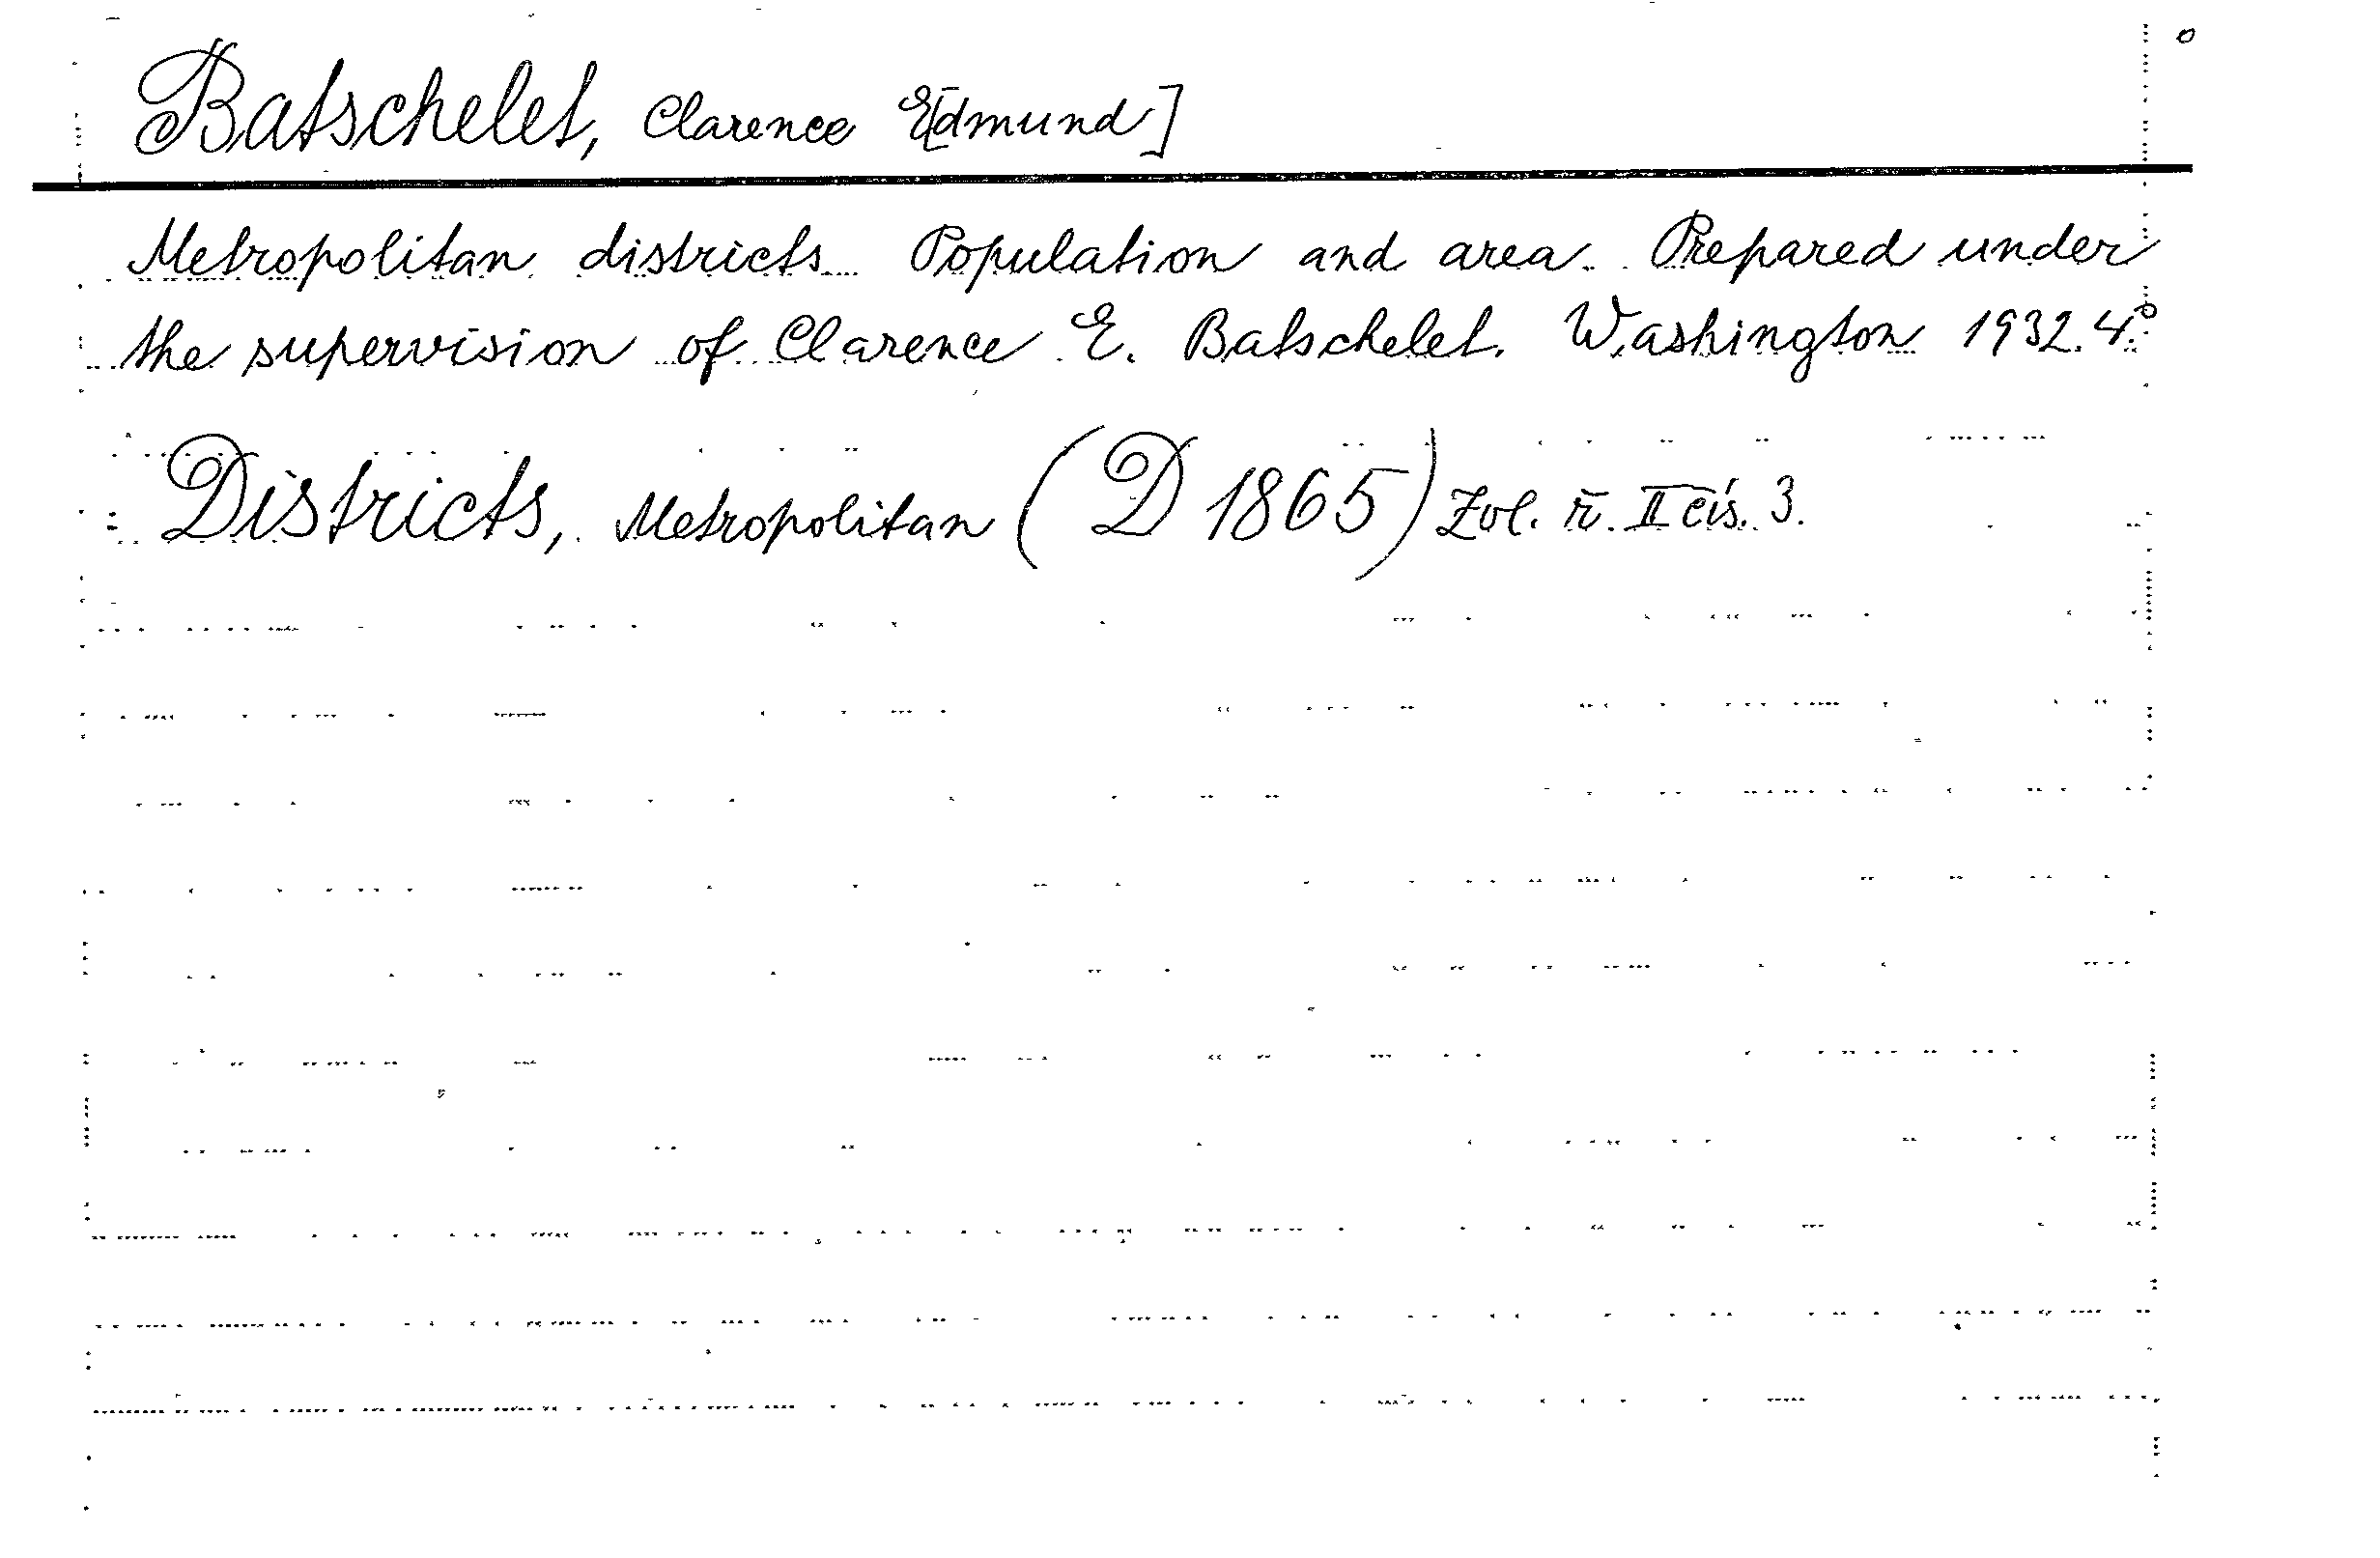 Batschelet, Clarence E[dmund]
Metropolitan districts. Population and area. Prepared under
the supervision of Clarence E. Batschelet. Washington 1932. 4.°
Districts, Metropolitan (D 1865) Zvl. ř. II čís. 3.